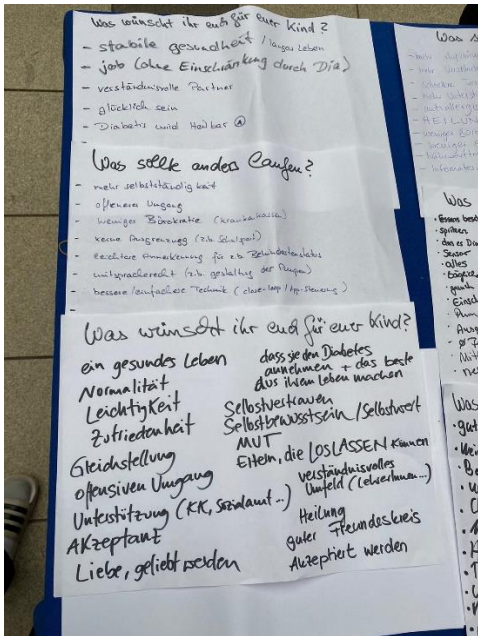 Was wünscht ihr euch für euer Kind?
- stabile gesundheit / langes Leben
- job (ohne Einschränkung durch Dia)
- verständnisvolle Partner
- glücklich sein
- Diabetes wird Heilbar
-
Was sollte anders laufen?
- mehr selbstständigkeit
- offenerer Umgang
- weniger Bürokratie (Krankenkassen)
- keine Ausgrenzung (z.b. Schulsport)
- leichtere Anerkennung für z.b. Behindertenstatus
- mitspracherecht (z.b. gestaltung der Pumpen)
- bessere/einfachere Technik (close-loop/App-steuerung)
Was wünscht ihr euch für euer Kind?
ein gesundes Leben
Normalität
Leichtigkeit
Zufriedenheit
Gleichstellung
offensiven Umgang
Unterstützung (KK, Sozialamt...)
Akzeptanz
Liebe, geliebt werden
dass sie den Diabetes
annehmen + das beste
aus ihrem Leben machen
Selbstvertrauen
Selbstbewusstsein/Selbstwert
MUT
Eltern, die LOSLASSEN können
verständnisvolles
Umfeld (LehrerInnen...)
Heilung
guter Freundeskreis
Akzeptiert werden
Was s
HEILUN
Was
Essens best
spritzen
das es Dia
Sensor
alles
Einsch
Was
gut